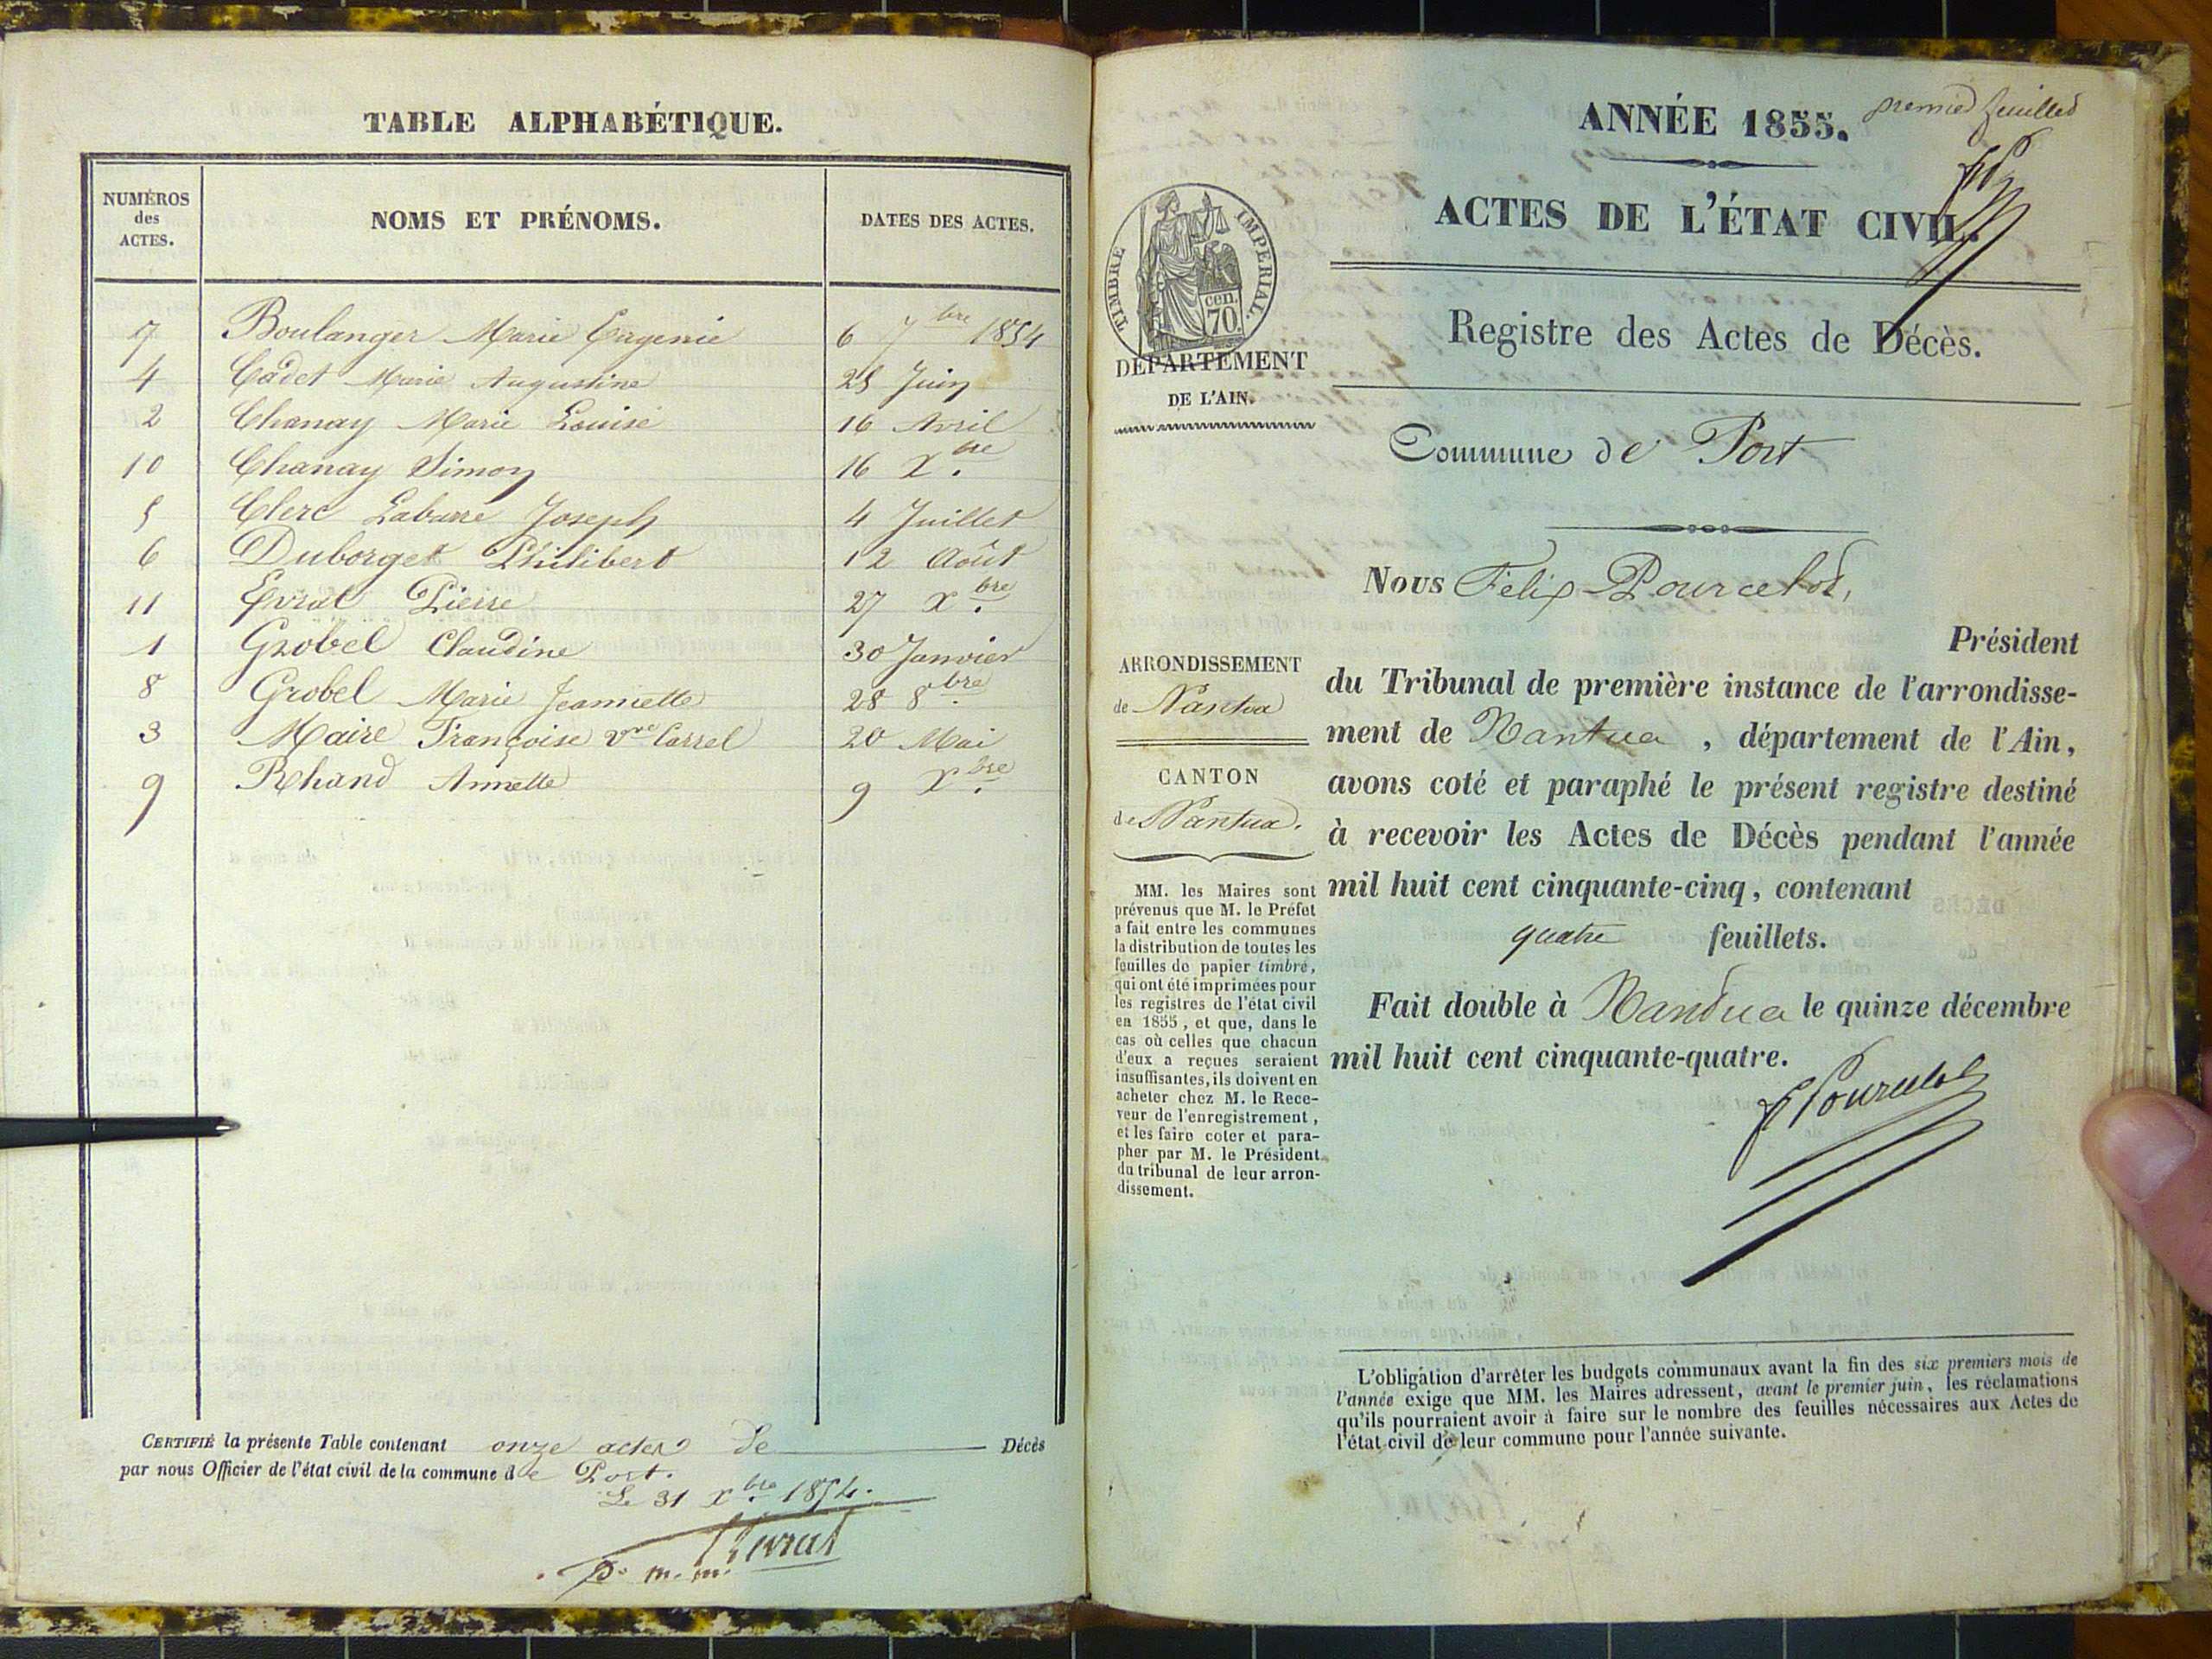 TABLE ALPHABÉTIQUE.
NUMÉROS
des
ACTES.
NOMS ET PRÉNOMS.
DATES DES ACTES.
7 Boulanger Marie Eugenie 6 7bre 1854
4 Cadet Marie Augustine 25 Juin
2 Chanay Marie Louise 16 Avril
10 Chanay Simon 16 Xbre
5 Clerc Labarre Joseph 4 Juillet
6 Duborget Philibert 12 Août
11 Evrat Pierre 27 Xbre
1 Grobel Claudine 30 Janvier
8 Grobel Marie Jeannette 28 8bre
3 Maire Françoise vve Carrel 20 Mai
9 Rhand Annette 9 Xbre
CERTIFIÉ la présente Table contenant onze actes de Décès
par nous Officier de l'état civil de la commune de Port.
Le 31 Xbre 1854.
Evrat
ANNÉE 1855.
premier feuillet
ACTES DE L'ÉTAT CIVIL.
Registre des Actes de Décès.
TIMBRE IMPÉRIAL.
cen.
70.
DÉPARTEMENT
DE L'AIN.
Commune de Port
Nous Félix Pourcelot,
Président
du Tribunal de première instance de l'arrondisse-
ment de Nantua, département de l'Ain,
avons coté et paraphé le présent registre destiné
à recevoir les Actes de Décès pendant l'année
mil huit cent cinquante-cinq, contenant
quatre feuillets.
Fait double à Nantua le quinze décembre
mil huit cent cinquante-quatre.
F Pourcelot
ARRONDISSEMENT
de Nantua
CANTON
de Nantua.
MM. les Maires sont
prévenus que M. le Préfet
a fait entre les communes
la distribution de toutes les
feuilles de papier timbré,
qui ont été imprimées pour
les registres de l'état civil
en 1855, et que, dans le
cas où celles que chacun
d'eux a reçues seraient
insuffisantes, ils doivent en
acheter chez M. le Rece-
veur de l'enregistrement,
et les faire coter et para-
pher par M. le Président
du tribunal de leur arron-
dissement.
L'obligation d'arrêter les budgets communaux avant la fin des six premiers mois de
l'année exige que MM. les Maires adressent, avant le premier juin, les réclamations
qu'ils pourraient avoir à faire sur le nombre des feuilles nécessaires aux Actes de
l'état civil de leur commune pour l'année suivante.